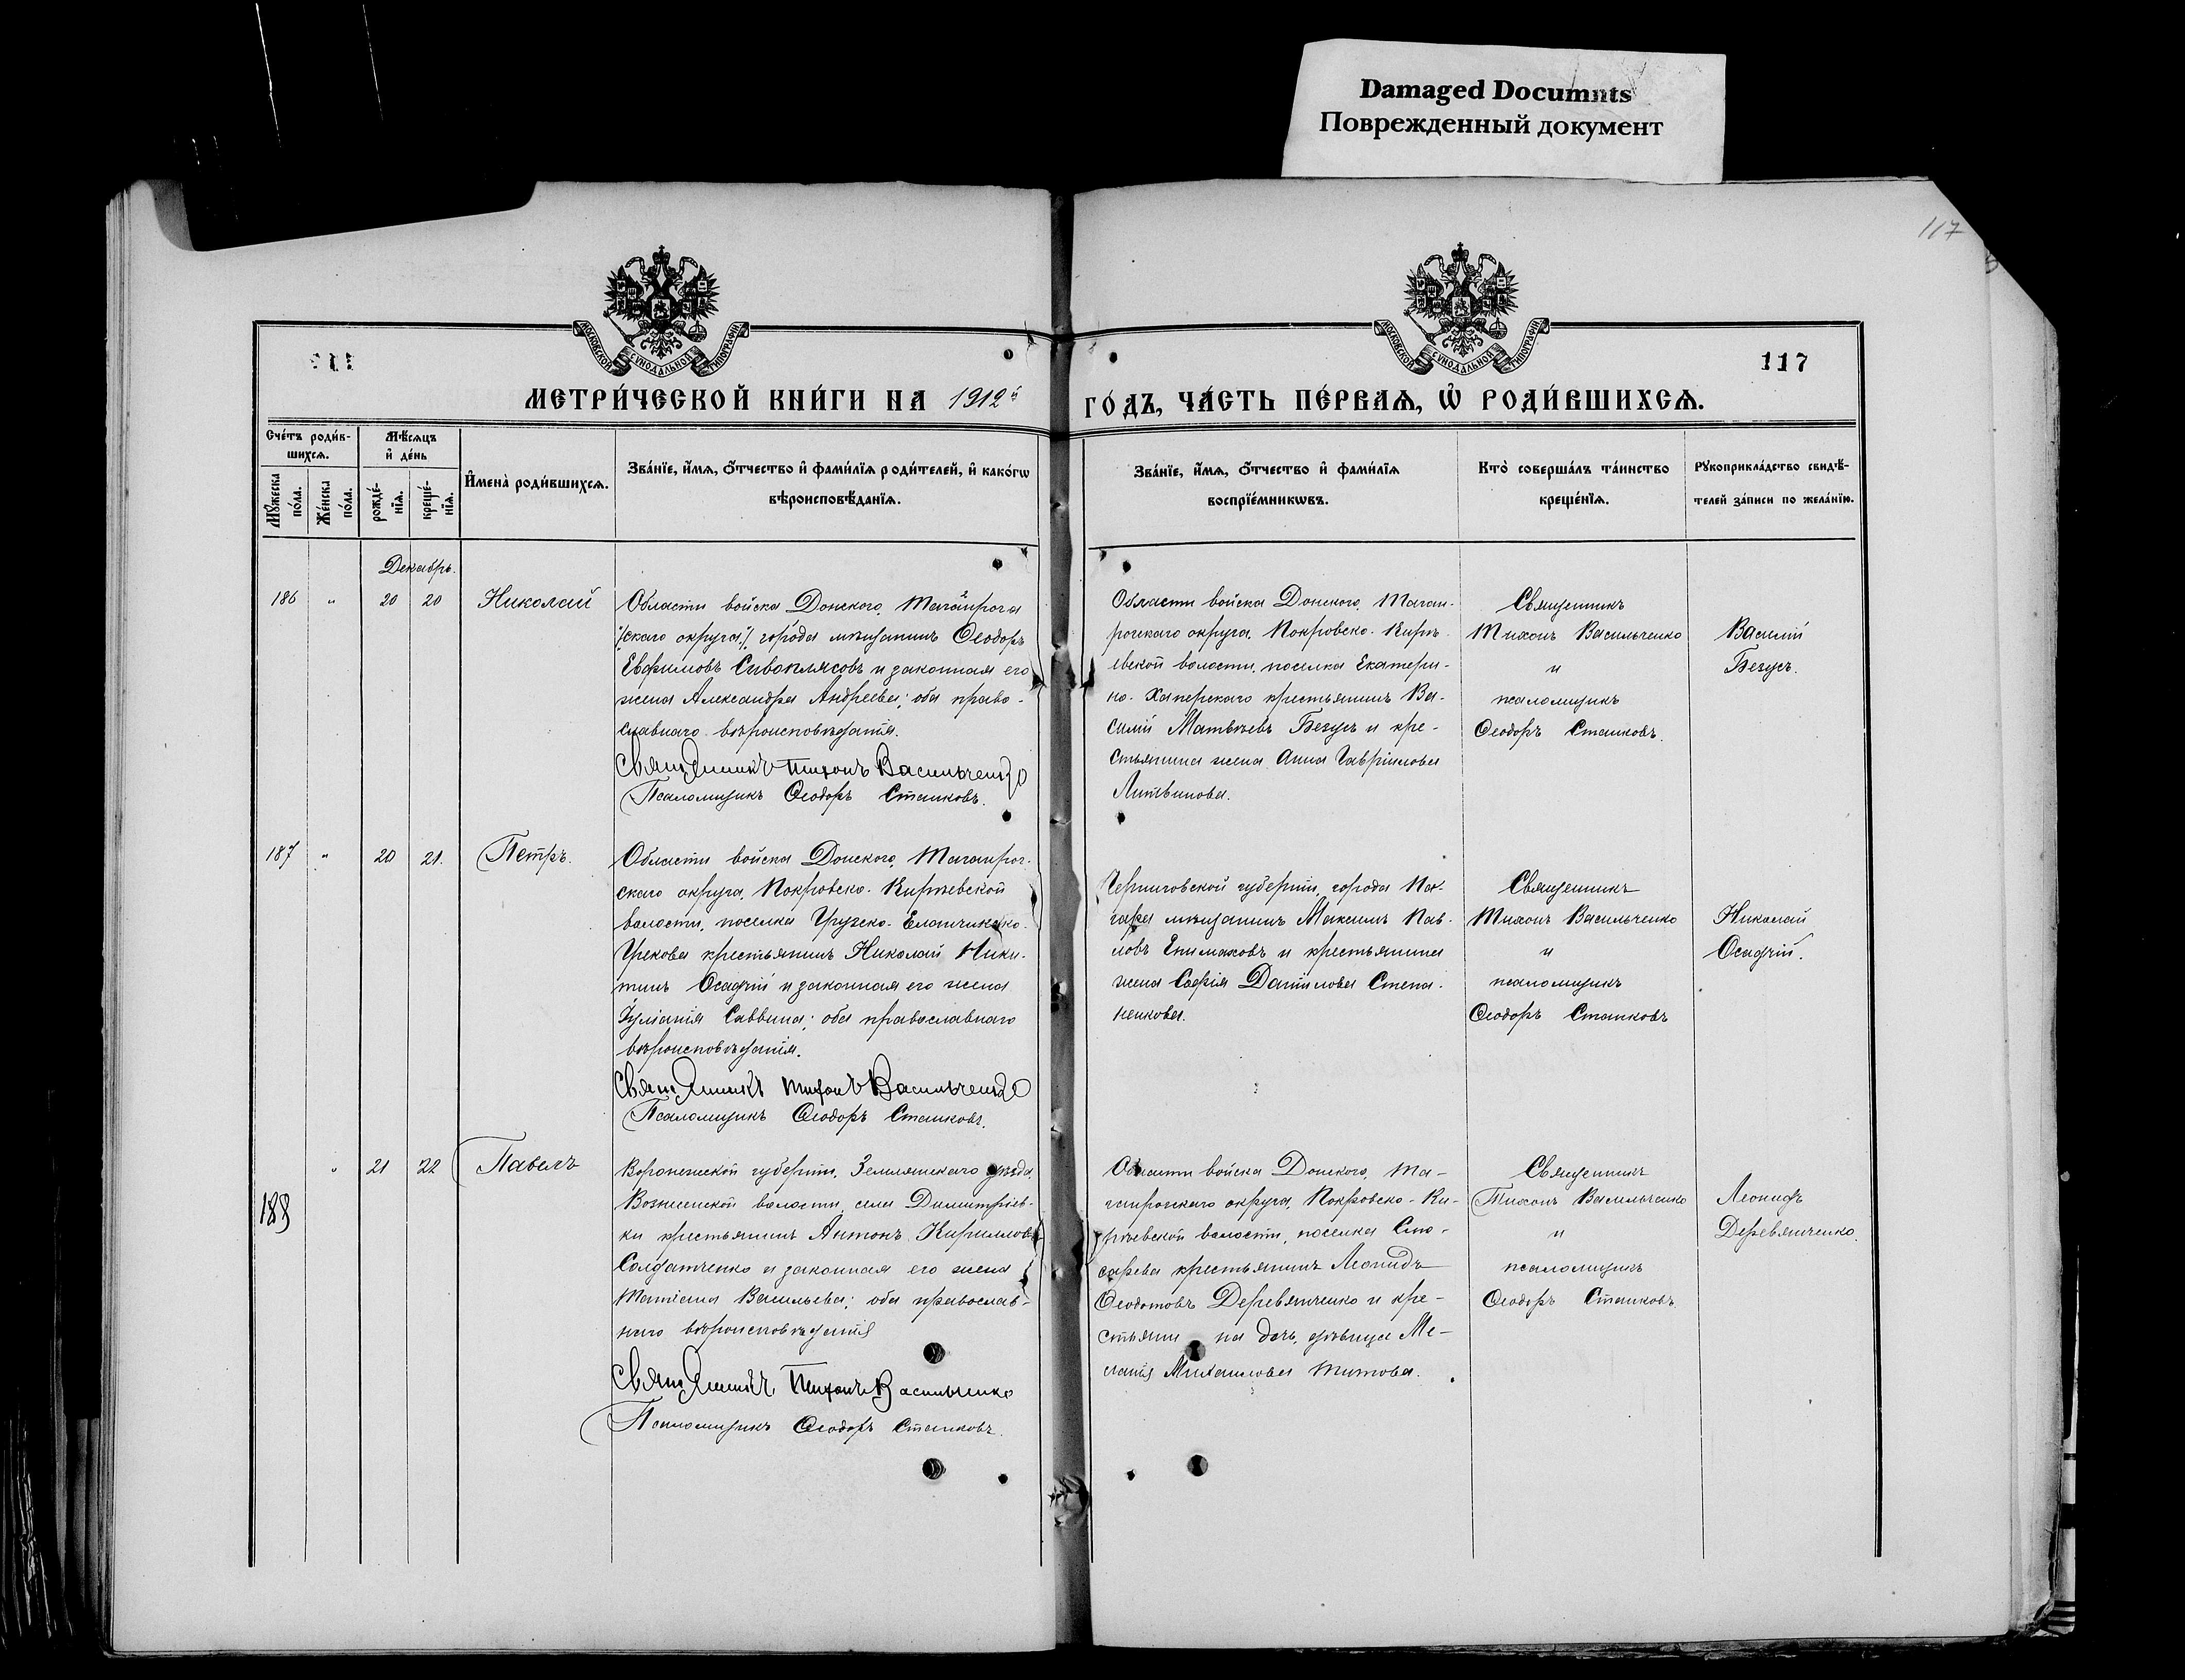 Damaged Documnts
Поврежденный документ
117
117
МЕТРИ́ЧЕСКОЙ КНИ́ГИ НА 1912й ГО́ДЪ, ЧА́СТЬ ПЕ́РВАѦ, Ѽ РОДИ́ВШИХСѦ.
Сче́тъ роди́в-
шихсѧ.
Мꙋ́жеска по́ла.
Же́нска по́ла.
Мѣ́сѧцъ
и҆ де́нь
рожде́-
нїѧ.
креще́-
нїѧ.
И҆мена̀ роди́вшихсѧ.
Зва́нїе, и҆́мѧ, ѻ҆́тчество и҆ фами́лїѧ роди́телей, и҆ како́гѡ
вѣроисповѣ́данїѧ.
Зва́нїе, и҆́мѧ, ѻ҆́тчество и҆ фами́лїѧ
воспрїе́мникѡвъ.
Кто̀ соверша́лъ та́инство
креще́нїѧ.
Рꙋкоприкла́дство свидѣ́-
телей за́писи по жела́нїю.
Декабрь.
186 " 20 20 Николай
Области войска Донского, Таганрога
скаго округа города мѣщанинъ Ѳеодоръ
Евфимовъ Сивоплясовъ и законная его
жена Александра Андреева; оба право-
славнаго вѣроисповѣданія.
Священникъ Тихонъ Васильченко
Псаломщикъ Ѳеодоръ Станковъ.
Области войска Донского, Таган-
рогскаго округа, Покровско-Кирѣ-
евской волости, поселка Екатери-
но-Хаперскаго крестьянинъ Ва-
силій Матвѣевъ Безусъ и кре-
стьянина жена Анна Гавріилова
Литвинова.
Священникъ
Тихонъ Васильченко
и
псаломщикъ
Ѳеодоръ Станковъ.
Василій
Безусъ.
187 " 20 21. Петръ.
Области войска Донского, Таганрог-
скаго округа, Покровско-Кирѣевской
волости, поселка Грузско-Еланчиско-
Грекова крестьянинъ Николай Ники-
тинъ Осадчій и законная его жена
Іуліанія Саввина; оба православнаго
вѣроисповѣданія.
Священникъ Тихонъ Васильченко
Псаломщикъ Ѳеодоръ Станковъ.
Черниговской губерніи, города По-
гара мѣщанинъ Максимъ Пав-
ловъ Екимаховъ и крестьянина
жена Софія Даніилова Степа-
ненкова.
Священникъ
Тихонъ Васильченко
и
псаломщикъ
Ѳеодоръ Станковъ
Николай
Осадчій.
188 " 21 22 Павелъ
Воронежской губерніи, Землянскаго уѣзда,
Вознесенской волости, села Димитріев-
ки крестьянинъ Антонъ Кирилловъ
Солдатченко и законная его жена
Татіана Васильева; оба православ-
наго вѣроисповѣданія
Священникъ Тихонъ Васильченко
Псаломщикъ Ѳеодоръ Станковъ.
Области войска Донского, Та-
ганрогскаго округа, Покровско-Ки-
рѣевской волости, поселка Слю-
сарева крестьянинъ Леонидъ
Ѳеодотовъ Деревянченко и кре-
стьянина дочь, дѣвица Ме-
ланія Михаилова Титова.
Священникъ
Тихонъ Васильченко
и
псаломщикъ
Ѳеодоръ Станковъ.
Леонидъ
Деревянченко.